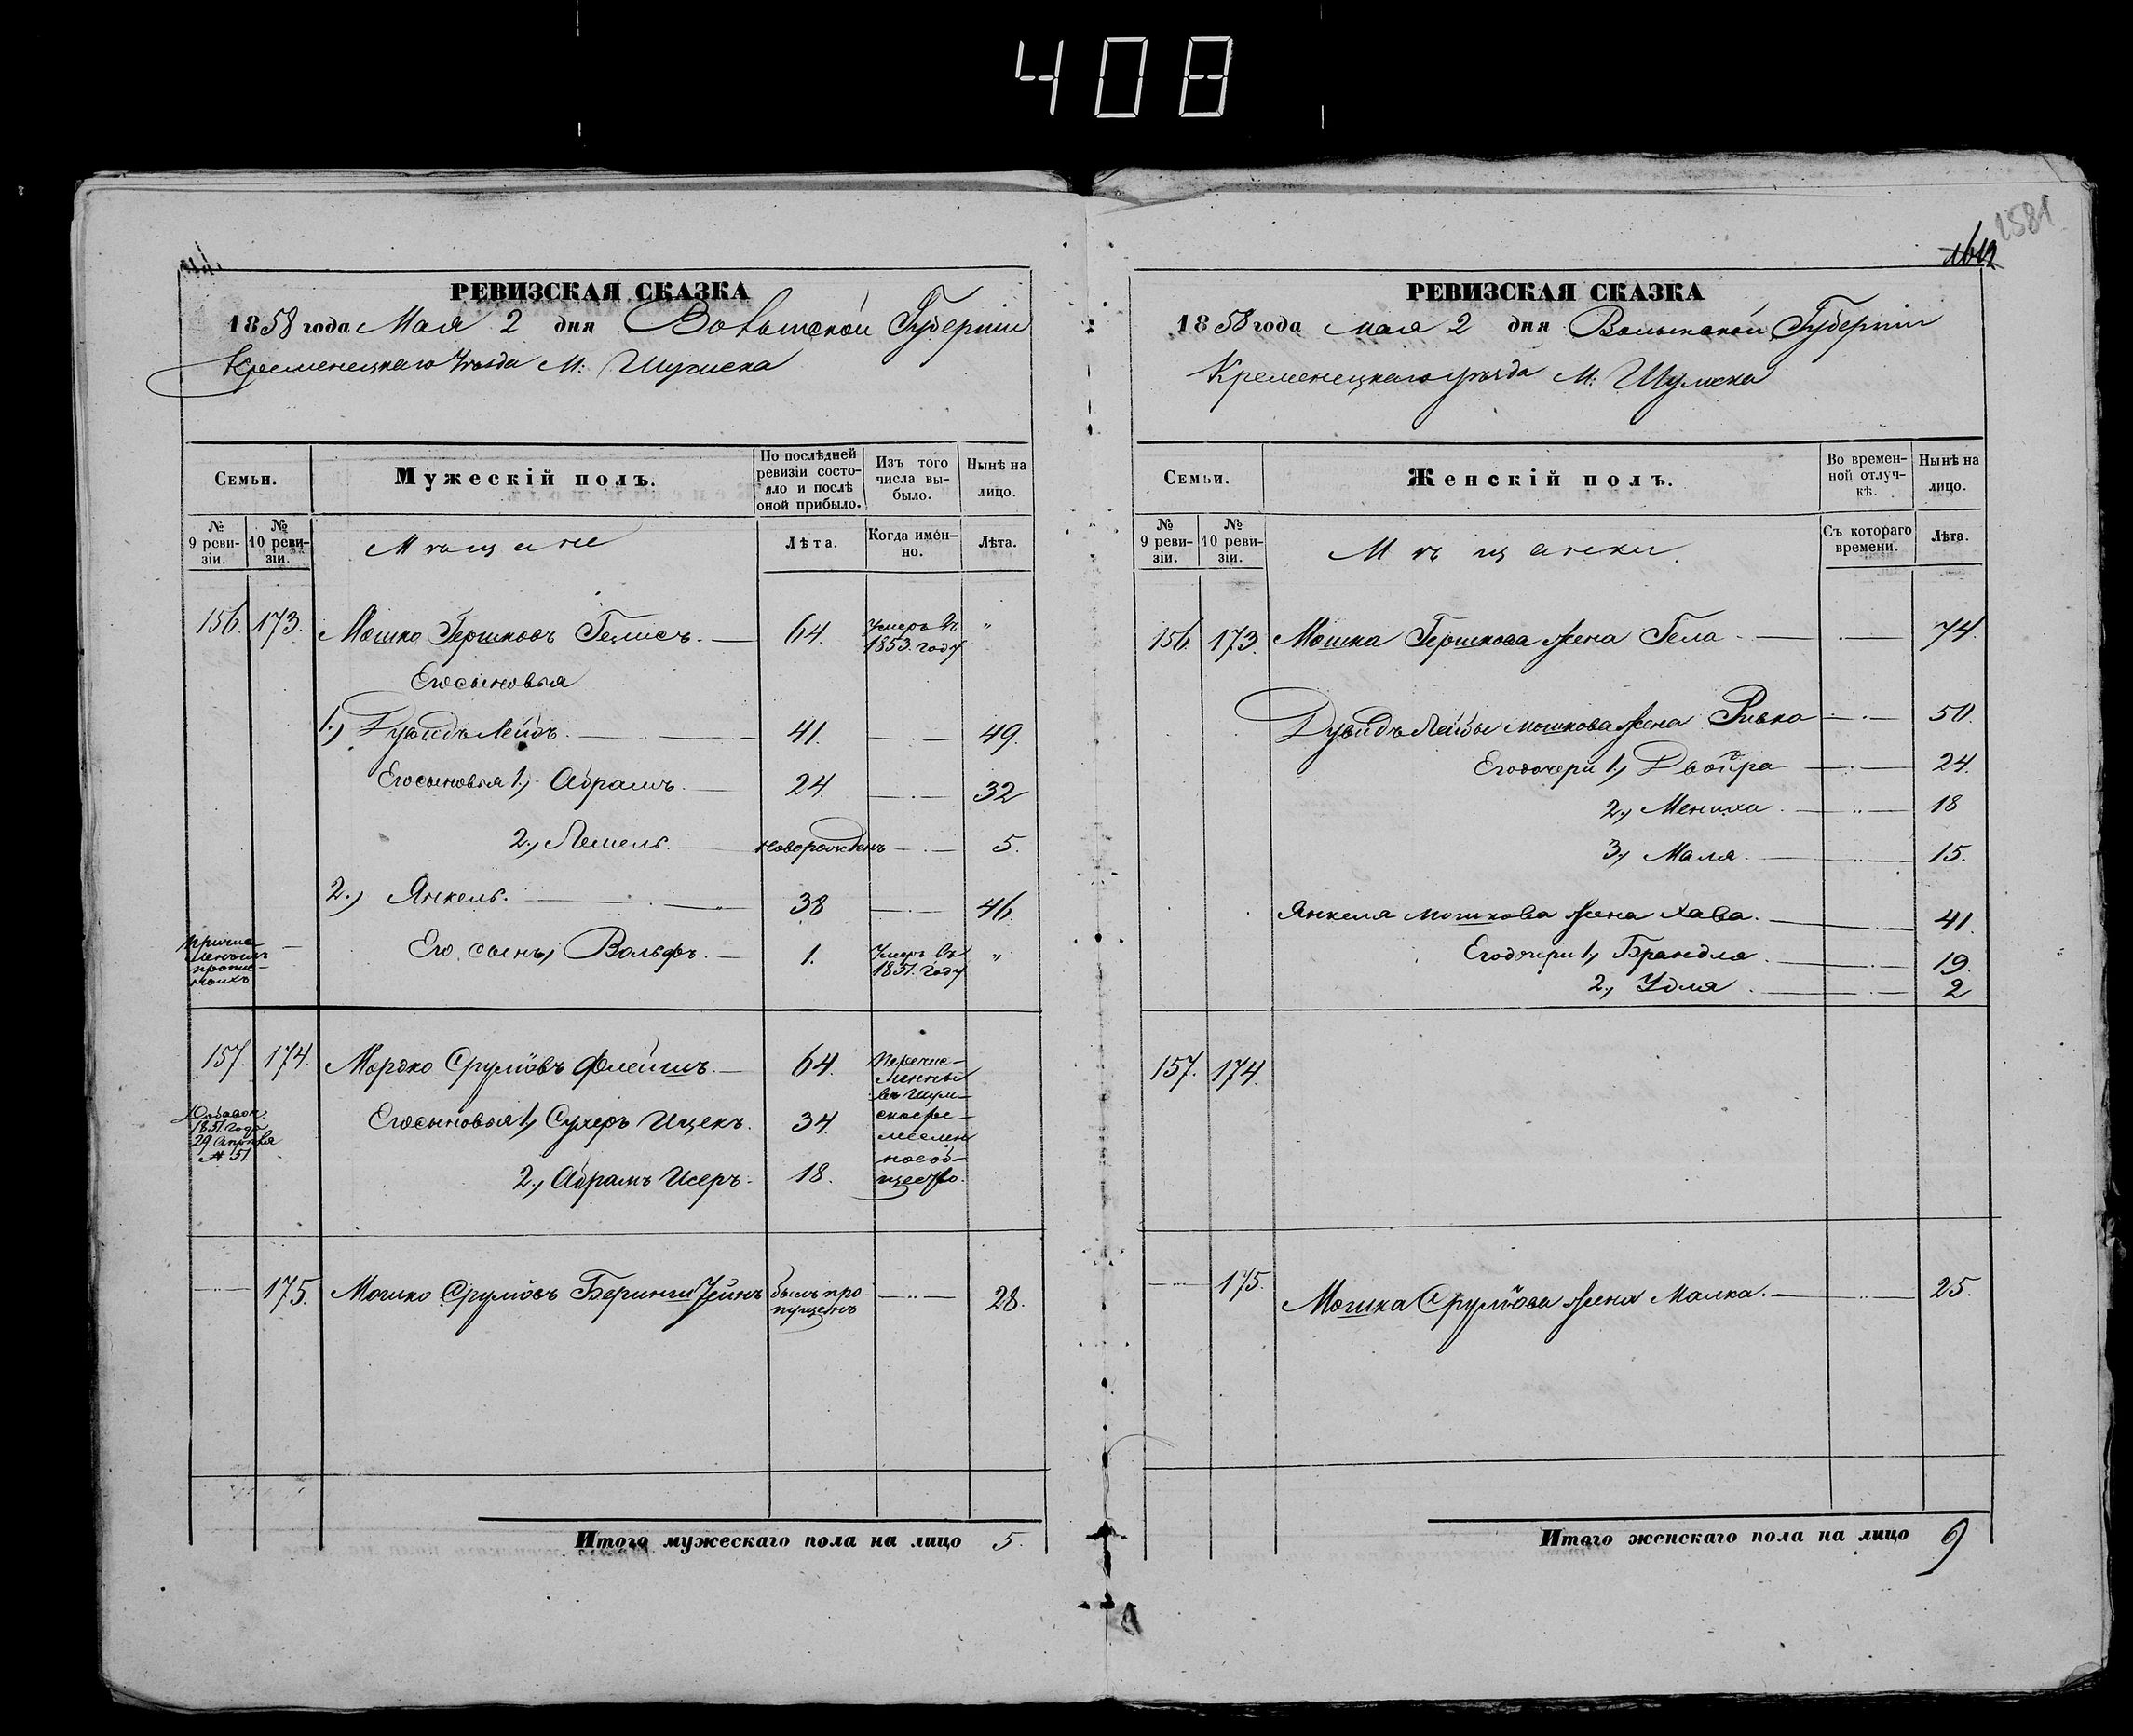 408
1581
1612
РЕВИЗСКАЯ СКАЗКА
1858 года Мая 2 дня Волынской Губерніи
Кременецкаго Уѣзда М: Шумска
Семьи.
Мужескій полъ.
По послѣдней ревизіи состояло и послѣ оной прибыло.
Изъ того числа выбыло.
Нынѣ на лицо.
№ 9 ревизіи.
№ 10 ревизіи.
Мѣщане
Лѣта.
Когда именно.
Лѣта.
156. 173. Мошко Гершковъ Гелисъ. — 64. Умеръ въ 1853. году "
Его сыновья
1.) Дувидъ Лейбъ. — 41. — 49.
Его сыновья 1., Абрамъ. — 24. — 32
2., Лемель. — новорожденъ — 5.
2.) Янкель. — 38 — 46.
Его сынъ, Вольфъ. — 1. Умеръ въ 1851. году "
157. 174. Мордко Срулiовъ Флейшъ. — 64. Перечисленны въ Шумское ремесленное общество.
Добавоч. 1851. года 29 Апрѣля № 51.
Его сыновья 1., Сухеръ Ицекъ. 34.
2., Абрамъ Исеръ. 18.
175. Мошко Срулiовъ былъ пропущенъ — 28.
Итого мужескаго пола на лицо 5.
РЕВИЗСКАЯ СКАЗКА
1858 года мая 2 дня Волынской Губерніи
Кременецкаго уѣзда М: Шумска
Семьи.
Женскій полъ.
Во временной отлучкѣ.
Нынѣ на лицо.
№ 9 ревизіи.
№ 10 ревизіи.
Мѣщанки.
Съ котораго времени.
Лѣта.
156. 173. Мошка Гершкова жена Гела — 74.
Дувидъ Лейбы Мошкова жена Ривка — 50.
Его дочери 1., Двойра — 24.
2., Мениха. — 18
3., Маля. — 15.
Янкеля Мошкова жена Хава. — 41.
Его дочери 1., Брандла. — 19.
2., Удля. — 2
157. 174.
175. Мошка Срулiова жена Малка. — 25.
Итого женскаго пола на лицо 9